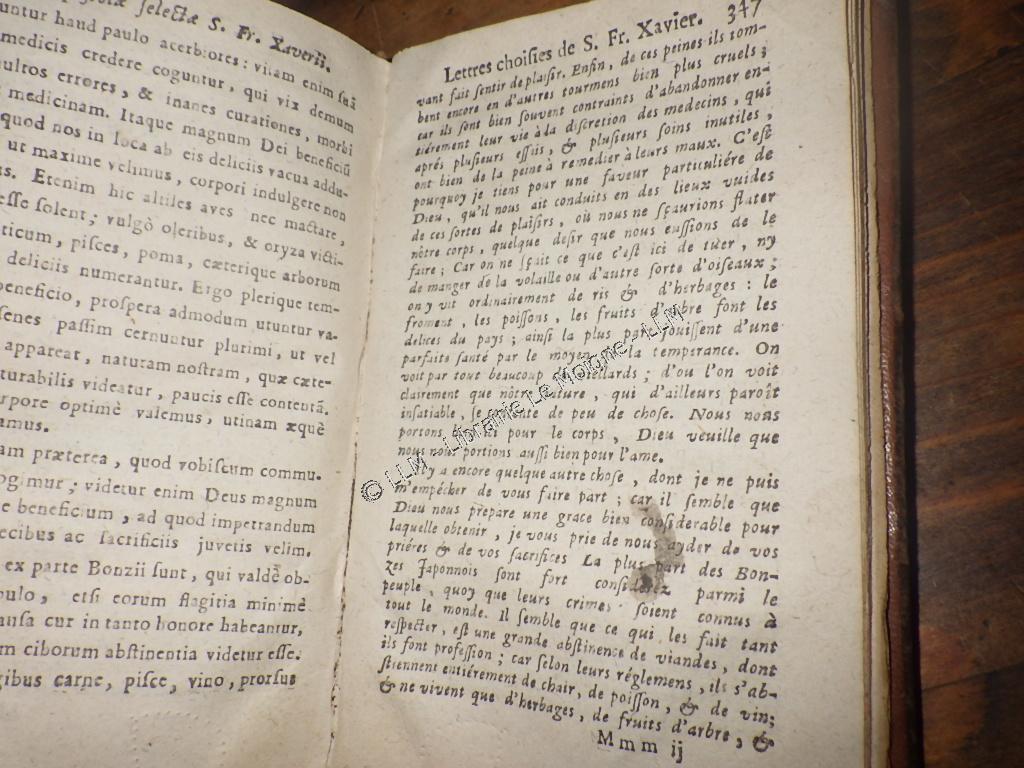 selectæ S. Fr. Xaverii.
untur haud paulo acerbiores: vitam enim suã
medicis credere coguntur, qui vix demum
multos errores, & inanes curationes, morbi
medicinam. Itaque magnum Dei beneficiũ
quod nos in loca ab eis deliciis vacua addu-
ut maxime velimus, corpori indulgere non
us. Etenim hic altiles aves nec mactare,
esse solent; vulgò oleribus, & oryza victi-
ticum, pisces, poma, cæterique arborum
deliciis numerantur. Ergo plerique tem-
beneficio, prospera admodum utuntur va-
senes passim cernuntur plurimi, ut vel
appareat, naturam nostram, quæ cæte-
turabilis videatur, paucis esse contentã.
rpore optimè valemus, utinam æquè
amus.
am præterea, quod vobiscum commu-
ogimur; videtur enim Deus magnum
e beneficium, ad quod impetrandum
ecibus ac sacrificiis juvetis velim.
ex parte Bonzii sunt, qui valdè ob-
pulo, etsi eorum flagitia minimè
ansa cur in tanto honore habeantur,
m ciborum abstinentia videtur esse.
gibus carne, pisce, vino, prorsus
Lettres choisies de S. Fr. Xavier. 347
vant fait sentir de plaisir. Enfin, de ces peines ils tom-
bent encore en d'autres tourmens bien plus cruels;
car ils sont bien souvent contraints d'abandonner en-
tiérement leur vie à la discretion des medecins, qui
aprés plusieurs essais, & plusieurs soins inutiles,
ont bien de la peine à remedier à leurs maux. C'est
pourquoy je tiens pour une faveur particuliére de
Dieu, qu'il nous ait conduits en des lieux vuides
de ces sortes de plaisirs, où nous ne sçaurions flater
nôtre corps, quelque desir que nous eussions de le
faire; Car on ne sçait ce que c'est ici de tuer, ny
de manger de la volaille ou d'autre sorte d'oiseaux;
on y vit ordinairement de ris & d'herbages: le
froment, les poissons, les fruits d'arbre font les
delices du pays; ainsi la plus part jouissent d'une
parfaite santé par le moyen la temperance. On
voit par tout beaucoup vieillards; d'ou l'on voit
clairement que nôtre nature, qui d'ailleurs paroît
insatiable, se contente de peu de chose. Nous nous
portons pour le corps, Dieu veuille que
nous nous portions aussi bien pour l'ame.
Il y a encore quelque autre chose, dont je ne puis
m'empécher de vous faire part; car il semble que
Dieu nous prepare une grace bien considerable pour
laquelle obtenir, je vous prie de nous ayder de vos
priéres & de vos sacrifices La plus part des Bon-
zes Japonnois sont fort considerez parmi le
peuple, quoy que leurs crimes soient connus à
tout le monde. Il semble que ce qui les fait tant
respecter, est une grande abstinence de viandes, dont
ils font profession; car selon leurs réglemens, ils s'ab-
stiennent entiérement de chair, de poisson, & de vin;
& ne vivent que d'herbages, de fruits d'arbre, &
Mmm ij
© LLM - Librairie Le Moigne - LLM